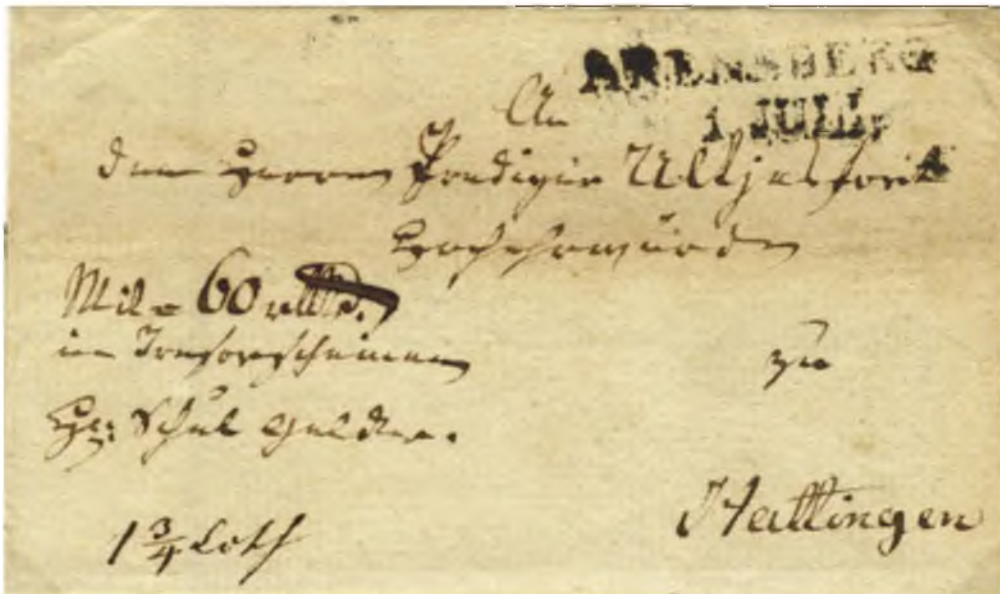 ARENSBERG
1. JULI.
An
den Herrn Prediger
Hochehrwürden
Mit 60
in Tresorscheinen
zu
Schul Gelder.
Hattingen
1 3/4 Loth